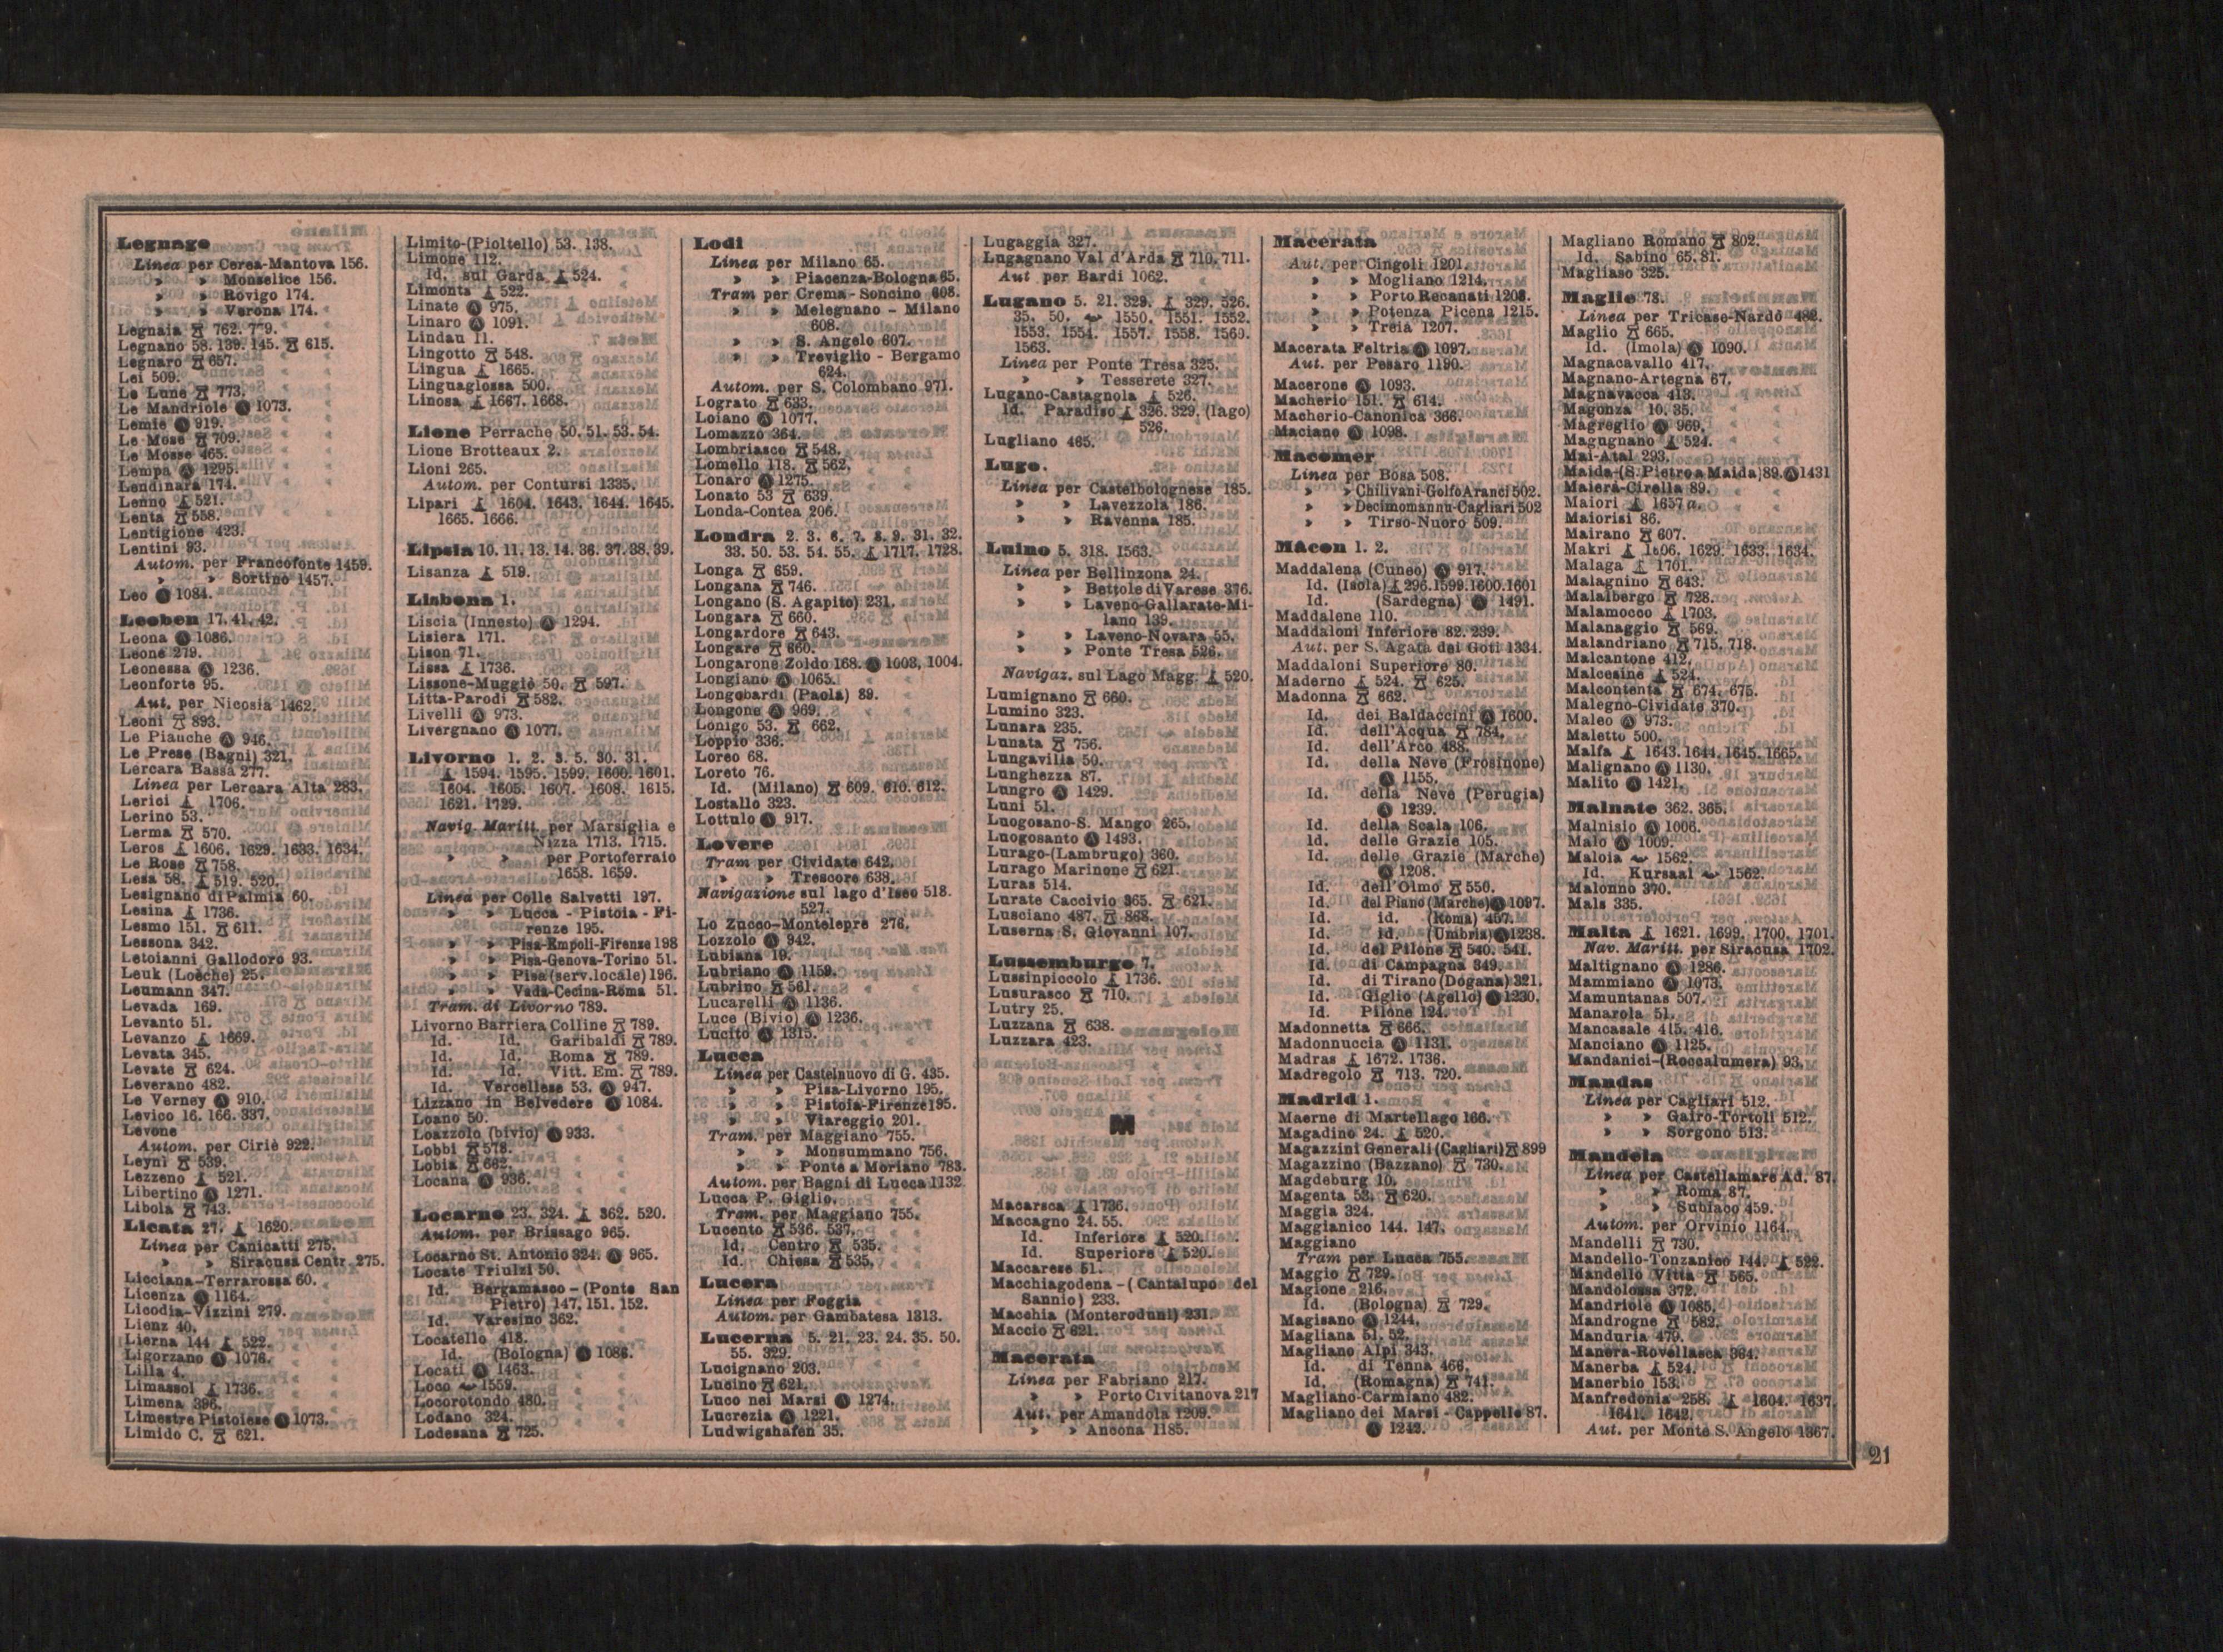 Legnago
Linea per Cerea-Mantova 156.
» » Monselice 156.
» » Rovigo 174.
» » Verona 174.
Legnaia 762. 779.
Legnano 58. 139. 145. 615.
Legnaro 657.
Lei 509.
Le Lune 773.
Le Mandriole 1073.
Lemie 919.
Le Mose 709.
Le Mosse 465.
Lempa 1295.
Lendinara 174.
Lenno 521.
Lenta 558.
Lentigione 423.
Lentini 93.
Autom. per Francofonte 1459.
» » Sortino 1457.
Leo 1084.
Leoben 17. 41. 42.
Leona 1086.
Leone 279.
Leonessa 1236.
Leonforte 95.
Aut. per Nicosia 1462.
Leoni 893.
Le Pianche 946.
Le Prese (Bagni) 321.
Lercara Bassa 277.
Linea per Lercara Alta 283.
Lerici 1706.
Lerino 53.
Lerma 570.
Leros 1606. 1629. 1633. 1634.
Le Rose 758.
Lesa 58. 519. 520.
Lesignano di Palmia 60.
Lesina 1736.
Lesmo 151. 611.
Lessona 342.
Letoianni Gallodoro 93.
Leuk (Loèche) 25.
Leumann 347.
Levada 169.
Levanto 51.
Levanzo 1669.
Levata 345.
Levate 624.
Leverano 482.
Le Verney 910.
Levico 16. 166. 337.
Levone
Autom. per Ciriè 922.
Leynì 539.
Lezzeno 521.
Libertino 1271.
Libola 743.
Licata 27. 1620.
Linea per Canicatti 275.
» » Siracusa Centr. 275.
Licciana-Terrarossa 60.
Licenza 1164.
Licodia-Vizzini 279.
Lienz 40.
Lierna 144 522.
Ligorzano 1076.
Lilla 4.
Limassol 1736.
Limena 396.
Limestre Pistoiese 1073.
Limido C. 621.
Limito-(Pioltello) 53. 138.
Limone 112.
Id. sul Garda 524.
Limonta 522.
Linate 975.
Linaro 1091.
Lindau 11.
Lingotto 548.
Lingua 1665.
Linguaglossa 500.
Linosa 1667. 1668.
Lione Perrache 50. 51. 53. 54.
Lione Brotteaux 2.
Lioni 265.
Autom. per Contursi 1335.
Lipari 1604. 1643. 1644. 1645.
1665. 1666.
Lipsia 10. 11. 13. 14. 36. 37. 38. 39.
Lisanza 519.
Lisbona 1.
Liscia (Innesto) 1294.
Lisiera 171.
Lison 71.
Lissa 1736.
Lissone-Muggiò 50. 597.
Litta-Parodi 582.
Livelli 973.
Livergnano 1077.
Livorno 1. 2. 3. 5. 30. 31.
1594. 1595. 1599. 1600. 1601.
1604. 1605. 1607. 1608. 1615.
1621. 1729.
Navig. Maritt. per Marsiglia e
Nizza 1713. 1715.
» » per Portoferraio
1658. 1659.
Linea per Colle Salvetti 197.
» » Lucca - Pistoia - Fi-
renze 195.
» » Pisa-Empoli-Firenze 198
» » Pisa-Genova-Torino 51.
» » Pisa (serv. locale) 196.
» » Vada-Cecina-Roma 51.
Tram. di Livorno 789.
Livorno Barriera Colline 789.
Id. Id. Garibaldi 789.
Id. Id. Roma 789.
Id. Id. Vitt. Em. 789.
Id. Vercellese 53. 947.
Lizzano in Belvedere 1084.
Loano 50.
Loazzolo (bivio) 933.
Lobbi 578.
Lobia 662.
Locana 936.
Locarno 23. 324. 362. 520.
Autom. per Brissago 965.
Locarno St. Antonio 324. 965.
Locate Triulzi 50.
Id. Bergamasco - (Ponte San
Pietro) 147. 151. 152.
Id. Varesino 362.
Locatello 418.
Id. (Bologna) 1086.
Locati 1463.
Loco 1559.
Locorotondo 480.
Lodano 324.
Lodesana 725.
Lodi
Linea per Milano 65.
» » Piacenza-Bologna 65.
Tram per Crema - Soncino 608.
» » Melegnano - Milano
608.
» » S. Angelo 607.
» » Treviglio - Bergamo
624.
Autom. per S. Colombano 971.
Lograto 633.
Loiano 1077.
Lomazzo 364.
Lombriasco 548.
Lomello 118. 562.
Lonaro 1275.
Lonato 53 639.
Londa-Contea 206.
Londra 2. 3. 6. 7. 8. 9. 31. 32.
33. 50. 53. 54. 55. 1717. 1728.
Longa 659.
Longana 746.
Longano (S. Agapito) 231.
Longara 660.
Longardore 643.
Longare 660.
Longarone Zoldo 168. 1003, 1004.
Longiano 1065.
Longobardi (Paola) 89.
Longone 969.
Lonigo 53. 662.
Loppio 336.
Loreo 68.
Loreto 76.
Id. (Milano) 609. 610. 612.
Lostallo 323.
Lottulo 917.
Lovere
Tram per Cividate 642.
» » Trescore 638.
Navigazione sul lago d'Iseo 518.
527.
Lo Zucco-Montelepre 276.
Lozzolo 942.
Lubiana 19.
Lubriano 1159.
Lubrino 561.
Lucarelli 1136.
Luce (Bivio) 1236.
Lucito 1315.
Lucca
Linea per Castelnuovo di G. 435.
» » Pisa-Livorno 195.
» » Pistoia-Firenze 195.
» » Viareggio 201.
Tram. per Maggiano 755.
» » Monsummano 756.
» » Ponte a Moriano 783.
Autom. per Bagni di Lucca 1132
Lucca P. Giglio.
Tram. per Maggiano 755.
Lucento 536. 537.
Id. Centro 535.
Id. Chiesa 535.
Lucera
Linea per Foggia
Autom. per Gambatesa 1313.
Lucerna 5. 21. 23. 24. 35. 50.
55. 329.
Lucignano 203.
Lucino 621.
Luco nei Marsi 1274.
Lucrezia 1221.
Ludwigshafen 35.
Lugaggia 327.
Lugagnano Val d'Arda 710. 711.
Aut per Bardi 1062.
Lugano 5. 21. 329. 329. 526.
35. 50. 1550. 1551. 1552.
1553. 1554. 1557. 1558. 1560.
1563.
Linea per Ponte Tresa 325.
» » Tesserete 327.
Lugano-Castagnola 526.
Id. Paradiso 326. 329. (lago)
526.
Lugliano 465.
Lugo.
Linea per Castelbolognese 185.
» » Lavezzola 186.
» » Ravenna 185.
Luino 5. 318. 1563.
Linea per Bellinzona 24.
» » Bettole di Varese 376.
» » Laveno-Gallarate-Mi-
lano 139.
» » Laveno-Novara 55.
» » Ponte Tresa 526.
Navigaz. sul Lago Magg. 520.
Lumignano 660.
Lumino 323.
Lunara 235.
Lunata 756.
Lungavilla 50.
Lunghezza 87.
Lungro 1429.
Luni 51.
Luogosano-S. Mango 265.
Luogosanto 1493.
Lurago-(Lambrugo) 360.
Lurago Marinone 621.
Luras 514.
Lurate Caccivio 365. 621.
Lusciano 487. 868.
Luserna S. Giovanni 107.
Lussemburgo 7.
Lussinpiccolo 1736.
Lusurasco 710.
Lutry 25.
Luzzana 638.
Luzzara 423.
M
Macarsca 1736.
Maccagno 24. 55.
Id. Inferiore 520.
Id. Superiore 520.
Maccarese 51.
Macchiagodena - (Cantalupo del
Sannio) 233.
Macchia (Monteroduni) 231.
Maccio 621.
Macerata
Linea per Fabriano 217.
» » Porto Civitanova 217
Aut. per Amandola 1209.
» » Ancona 1185.
Macerata
Aut. per Cingoli 1201.
» » Mogliano 1214.
» » Porto Recanati 1208.
» » Potenza Picena 1215.
» » Treia 1207.
Macerata Feltria 1097.
Aut. per Pesaro 1190.
Macerone 1093.
Macherio 151. 614.
Macherio-Canonica 366.
Maciano 1098.
Macomer
Linea per Bosa 508.
» » Chilivani-Golfo Aranci 502.
» » Decimomannu-Cagliari 502
» » Tirso-Nuoro 509.
Mâcon 1. 2.
Maddalena (Cuneo) 917.
Id. (Isola) 296. 1599. 1600. 1601
Id. (Sardegna) 1491.
Maddalene 110.
Maddaloni Inferiore 82. 239.
Aut. per S. Agata dei Goti 1334.
Maddaloni Superiore 80.
Maderno 524. 625.
Madonna 662.
Id. dei Baldaccini 1600.
Id. dell'Acqua 784.
Id. dell'Arco 488.
Id. della Neve (Frosinone)
1155.
Id. della Neve (Perugia)
1239.
Id. della Scala 106.
Id. delle Grazie 105.
Id. delle Grazie (Marche)
1208.
Id. dell'Olmo 550.
Id. del Piano (Marche) 1097.
Id. id. (Roma) 467.
Id. id. (Umbria) 1238.
Id. del Pilone 540. 541.
Id. di Campagna 349.
Id. di Tirano (Dogana) 321.
Id. Giglio (Agello) 1230.
Id. Pilone 124.
Madonnetta 666.
Madonnuccia 1131.
Madras 1672. 1736.
Madregolo 713. 720.
Madrid 1.
Maerne di Martellago 166.
Magadino 24. 520.
Magazzini Generali (Cagliari) 899
Magazzino (Bazzano) 730.
Magdeburg 10.
Magenta 53. 620.
Maggia 324.
Maggianico 144. 147.
Maggiano
Tram per Lucca 755.
Maggio 729.
Magione 216.
Id. (Bologna) 729.
Magisano 1244.
Magliana 51. 52.
Magliano Alpi 343.
Id. di Tenna 466.
Id. (Romagna) 741.
Magliano-Carmiano 482.
Magliano dei Marsi - Cappelle 87.
1242.
Magliano Romano 802.
Id. Sabino 65. 81.
Magliaso 325.
Maglie 78.
Linea per Tricase-Nardò 482.
Maglio 665.
Id. (Imola) 1090.
Magnacavallo 417.
Magnano-Artegna 67.
Magnavacca 413.
Magonza 10. 35.
Magreglio 969.
Magugnano 524.
Mai-Atal 293.
Maida-(S. Pietro a Maida) 89. 1431
Maierà-Cirella 89.
Maiori 1657 a.
Maiorisi 86.
Mairano 607.
Makri 1606. 1629. 1633. 1634.
Malaga 1701.
Malagnino 643.
Malalbergo 728.
Malamocco 1703.
Malanaggio 569.
Malandriano 715. 718.
Malcantone 412.
Malcesine 524.
Malcontenta 674. 675.
Malegno-Cividate 370.
Maleo 973.
Maletto 500.
Malfa 1643. 1644. 1645. 1665.
Malignano 1130.
Malito 1421.
Malnate 362. 365.
Malnisio 1006.
Malo 1009.
Maloia 1562.
Id. Kursaal 1562.
Malonno 370.
Mals 335.
Malta 1621. 1699. 1700. 1701.
Nav. Maritt. per Siracusa 1702.
Maltignano 1286.
Mammiano 1073.
Mamuntanas 507.
Manarola 51.
Mancasale 415. 416.
Manciano 1125.
Mandanici-(Roccalumera) 93.
Mandas
Linea per Cagliari 512.
» » Gairo-Tortoli 512.
» » Sorgono 513.
Mandela
Linea per Castellamare Ad. 87.
» » Roma 87.
» » Subiaco 459.
Autom. per Orvinio 1164.
Mandelli 730.
Mandello-Tonzanico 144. 522.
Mandello Vitta 565.
Mandolossa 372.
Mandriole 1085.
Mandrogne 582.
Manduria 479.
Manera-Rovellasca 364.
Manerba 524.
Manerbio 153.
Manfredonia 258. 1604. 1637.
1641. 1642.
Aut. per Monte S. Angelo 1367.
21